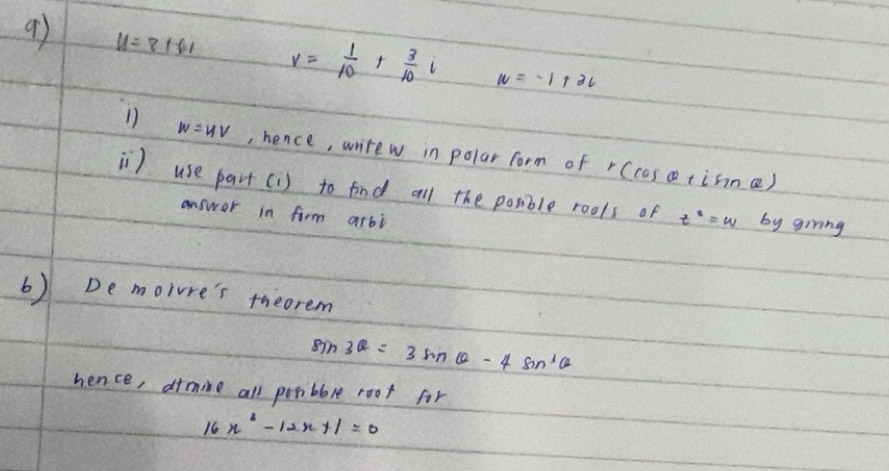 a) u = 8 + 6i v = 1/10 + 3/10 i w = -1 + 3i
i) w = uv , hence , write w in polar form of r(cos θ + i sin θ)
ii) use part (i) to find all the posible roots of = w by giving
answer in form a+bi
b) De moivre's theorem
sin 3θ = 3 sin θ - 4 sin³θ
hence, all posibble root for
16x³ - 12x + 1 = 0